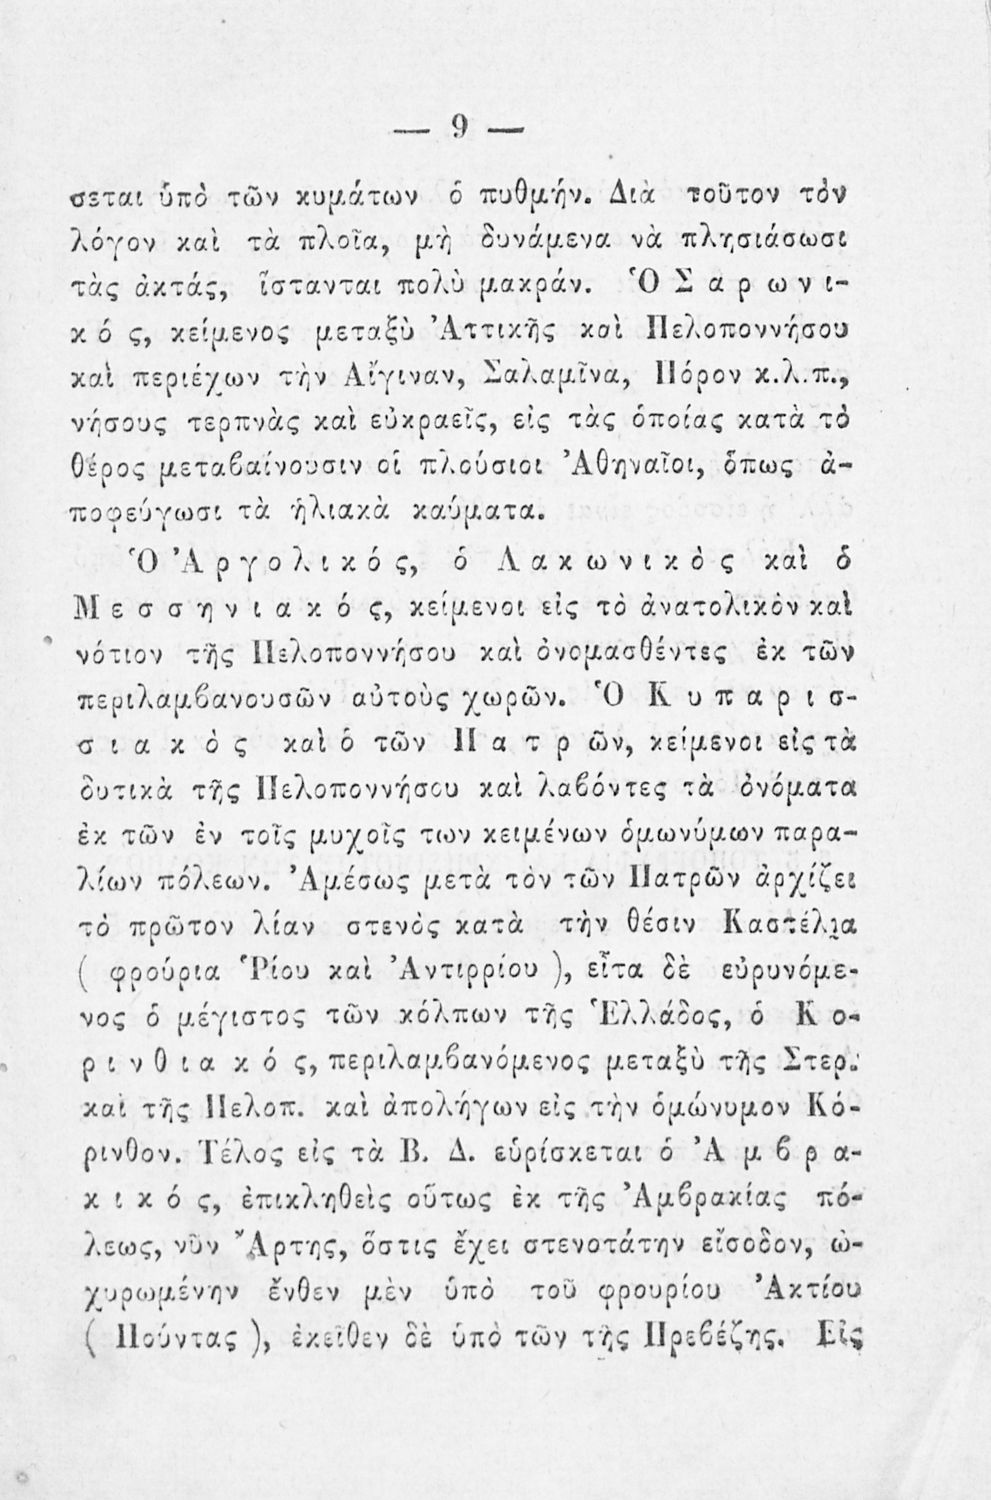 — 9 —
σεται ὑπὸ τῶν κυμάτων ὁ πυθμήν. Διὰ τοῦτον τὸν
λόγον καὶ τὰ πλοῖα, μὴ δυνάμενα νὰ πλησιάσωσι
τὰς ἀκτάς, ἵστανται πολὺ μακράν. Ὁ Σ α ρ ω ν ι-
κ ό ς, κείμενος μεταξὺ Ἀττικῆς καὶ Πελοποννήσου
καὶ περιέχων τὴν Αἴγιναν, Σαλαμῖνα, Πόρον κ.λ.π.,
νήσους τερπνὰς καὶ εὐκραεῖς, εἰς τὰς ὁποίας κατὰ τὸ
θέρος μεταβαίνουσιν οἱ πλούσιοι Ἀθηναῖοι, ὅπως ἀ-
ποφεύγωσι τὰ ἡλιακὰ καύματα.
Ὁ Ἀ ρ γ ο λ ι κ ό ς, ὁ Λ α κ ω ν ι κ ὸ ς καὶ ὁ
Μ ε σ σ η ν ι α κ ό ς, κείμενοι εἰς τὸ ἀνατολικὸν καὶ
νότιον τῆς Πελοποννήσου καὶ ὀνομασθέντες ἐκ τῶν
περιλαμβανουσῶν αὐτοὺς χωρῶν. Ὁ Κ υ π α ρ ι σ-
σ ι α κ ὸ ς καὶ ὁ τῶν Π α τ ρ ῶν, κείμενοι εἰς τὰ
δυτικὰ τῆς Πελοποννήσου καὶ λαβόντες τὰ ὀνόματα
ἐκ τῶν ἐν τοῖς μυχοῖς των κειμένων ὁμωνύμων παρα-
λίων πόλεων. Ἀμέσως μετὰ τὸν τῶν Πατρῶν ἀρχίζει
τὸ πρῶτον λίαν στενὸς κατὰ τὴν θέσιν Καστέλια
( φρούρια Ῥίου καὶ Ἀντιρρίου ), εἶτα δὲ εὐρυνόμε-
νος ὁ μέγιστος τῶν κόλπων τῆς Ἑλλάδος, ὁ Κ ο-
ρ ι ν θ ι α κ ό ς, περιλαμβανόμενος μεταξὺ τῆς Στερ.
καὶ τῆς Πελοπ. καὶ ἀπολήγων εἰς τὴν ὁμώνυμον Κό-
ρινθον. Τέλος εἰς τὰ Β. Δ. εὑρίσκεται ὁ Ἀ μ β ρ α-
κ ι κ ό ς, ἐπικληθεὶς οὕτως ἐκ τῆς Ἀμβρακίας πό-
λεως, νῦν Ἄρτης, ὅστις ἔχει στενοτάτην εἴσοδον, ὠ-
χυρωμένην ἔνθεν μὲν ὑπὸ τοῦ φρουρίου Ἀκτίου
( Πούντας ), ἐκεῖθεν δὲ ὑπὸ τῶν τῆς Πρεβέζης. Εἰς